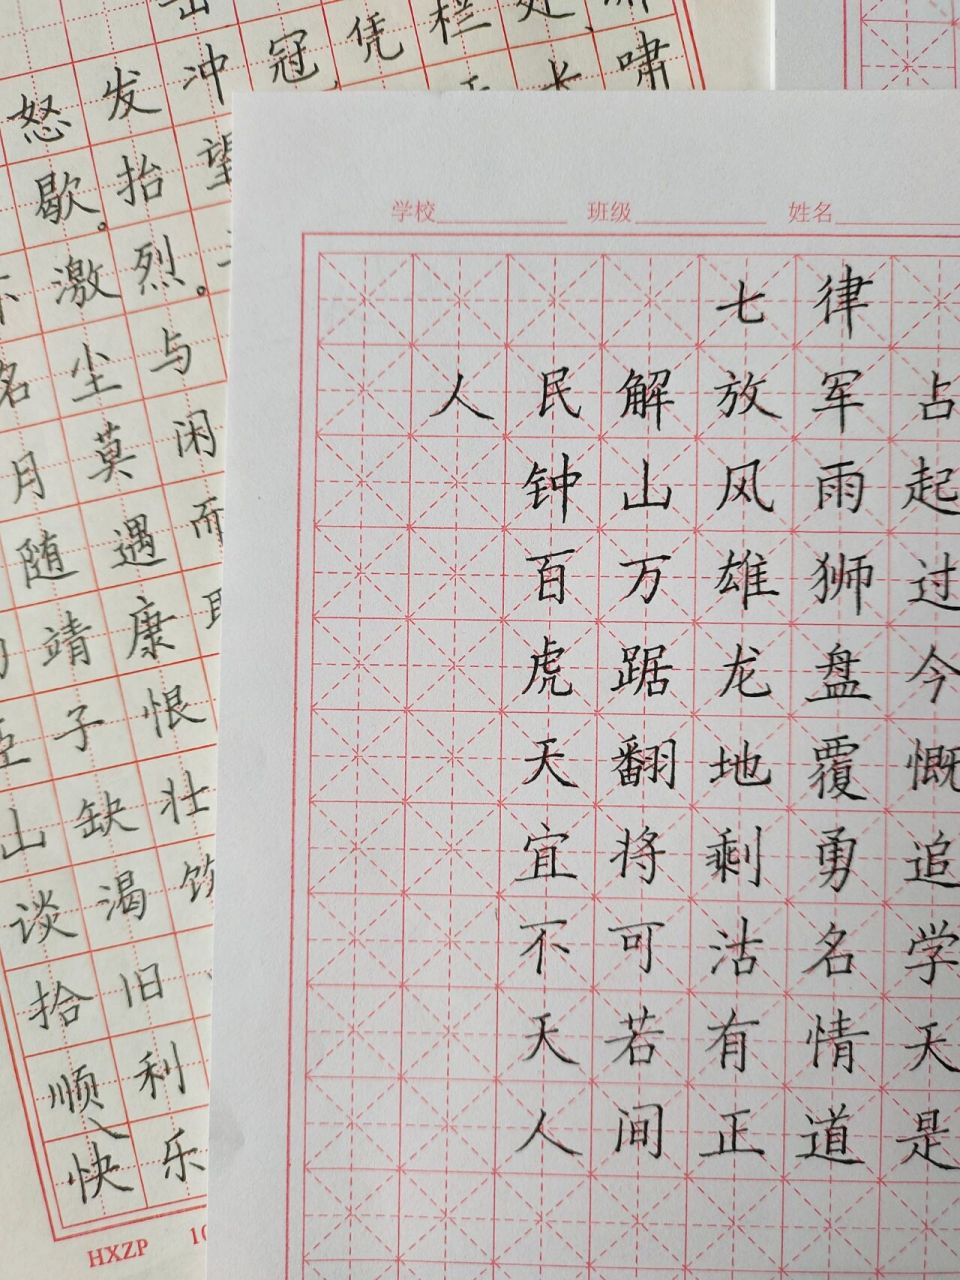 怒发冲冠,凭栏处、
啸
歇。抬望
激烈。
名尘与
月莫闲
随遇而
靖康
子恨
山缺壮
谈渴饮
拾旧
顺利
快乐
HXZP 10
学校 班级 姓名
七律
人民解放军占
钟山风雨起
百万雄狮过
虎踞龙盘今
天翻地覆慨
宜将剩勇追
不可沽名学
天若有情天
人间正道是